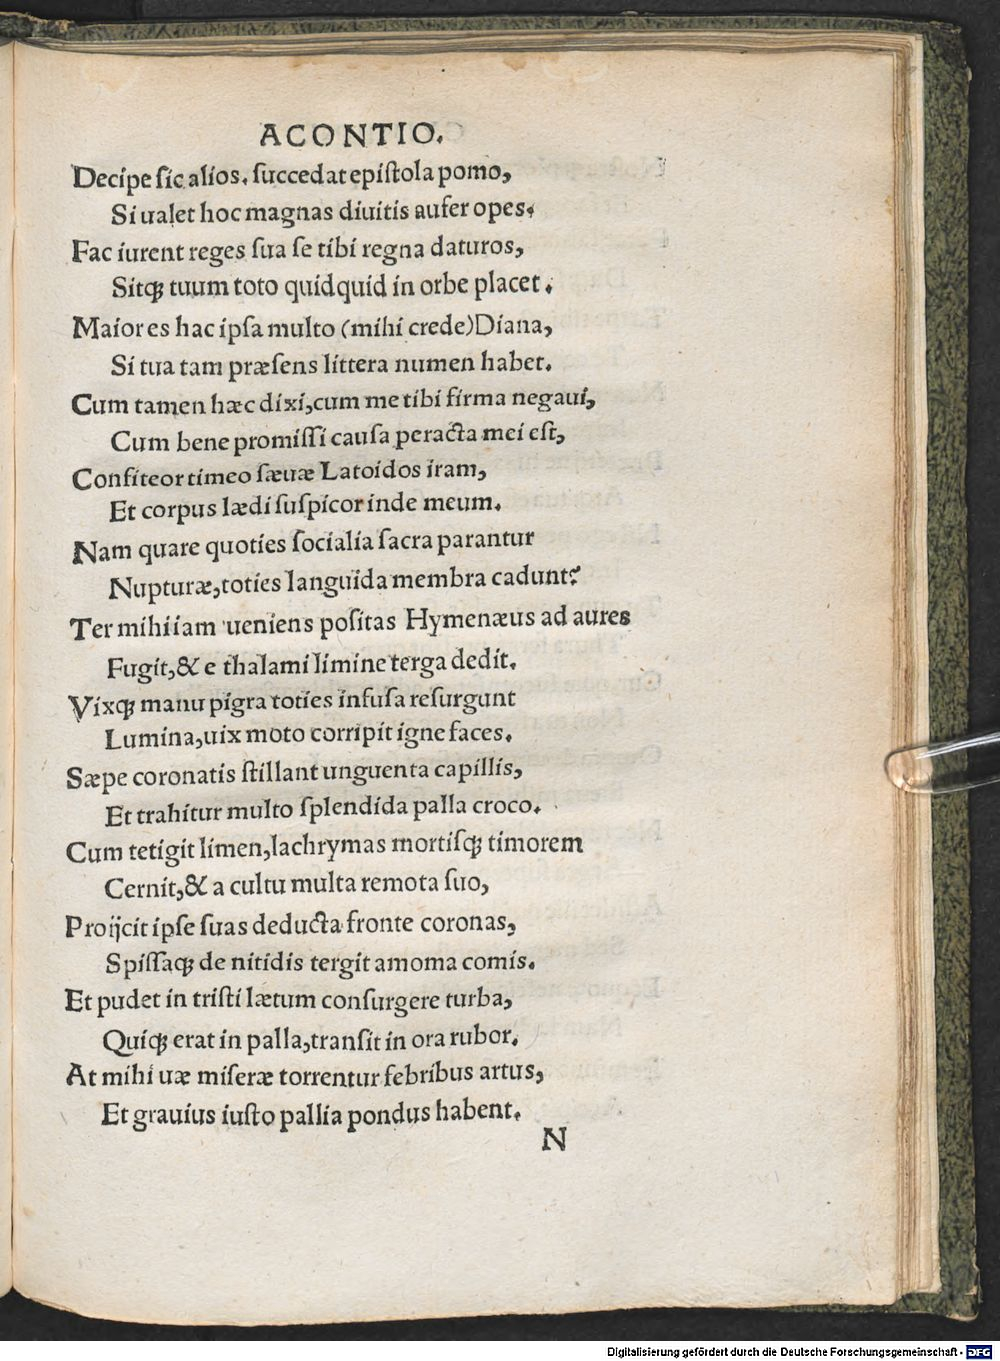 ACONTIO.
Decipe sic alios. succedat epistola pomo,
Si ualet hoc magnas diuitis aufer opes.
Fac iurent reges sua se tibi regna daturos,
Sitqꝫ tuum toto quidquid in orbe placet.
Maior es hac ipsa multo (mihi crede) Diana,
Si tua tam præsens littera numen habet.
Cum tamen hæc dixi, cum me tibi firma negaui,
Cum bene promissi causa peracta mei est,
Confiteor timeo sæuæ Latoidos iram,
Et corpus lædi suspicor inde meum.
Nam quare quoties socialia sacra parantur
Nupturæ, toties languida membra cadunt?
Ter mihi iam ueniens positas Hymenæus ad aures
Fugit, & e thalami limine terga dedit.
Vixqꝫ manu pigra toties infusa resurgunt
Lumina, uix moto corripit igne faces.
Sæpe coronatis stillant unguenta capillis,
Et trahitur multo splendida palla croco.
Cum tetigit limen, lachrymas mortisqꝫ timorem
Cernit, & a cultu multa remota suo,
Proijcit ipse suas deducta fronte coronas,
Spissaqꝫ de nitidis tergit amoma comis.
Et pudet in tristi lætum consurgere turba,
Quiqꝫ erat in palla, transit in ora rubor.
At mihi uæ miseræ torrentur febribus artus,
Et grauius iusto pallia pondus habent.
N
Digitalisierung gefördert durch die Deutsche Forschungsgemeinschaft - DFG